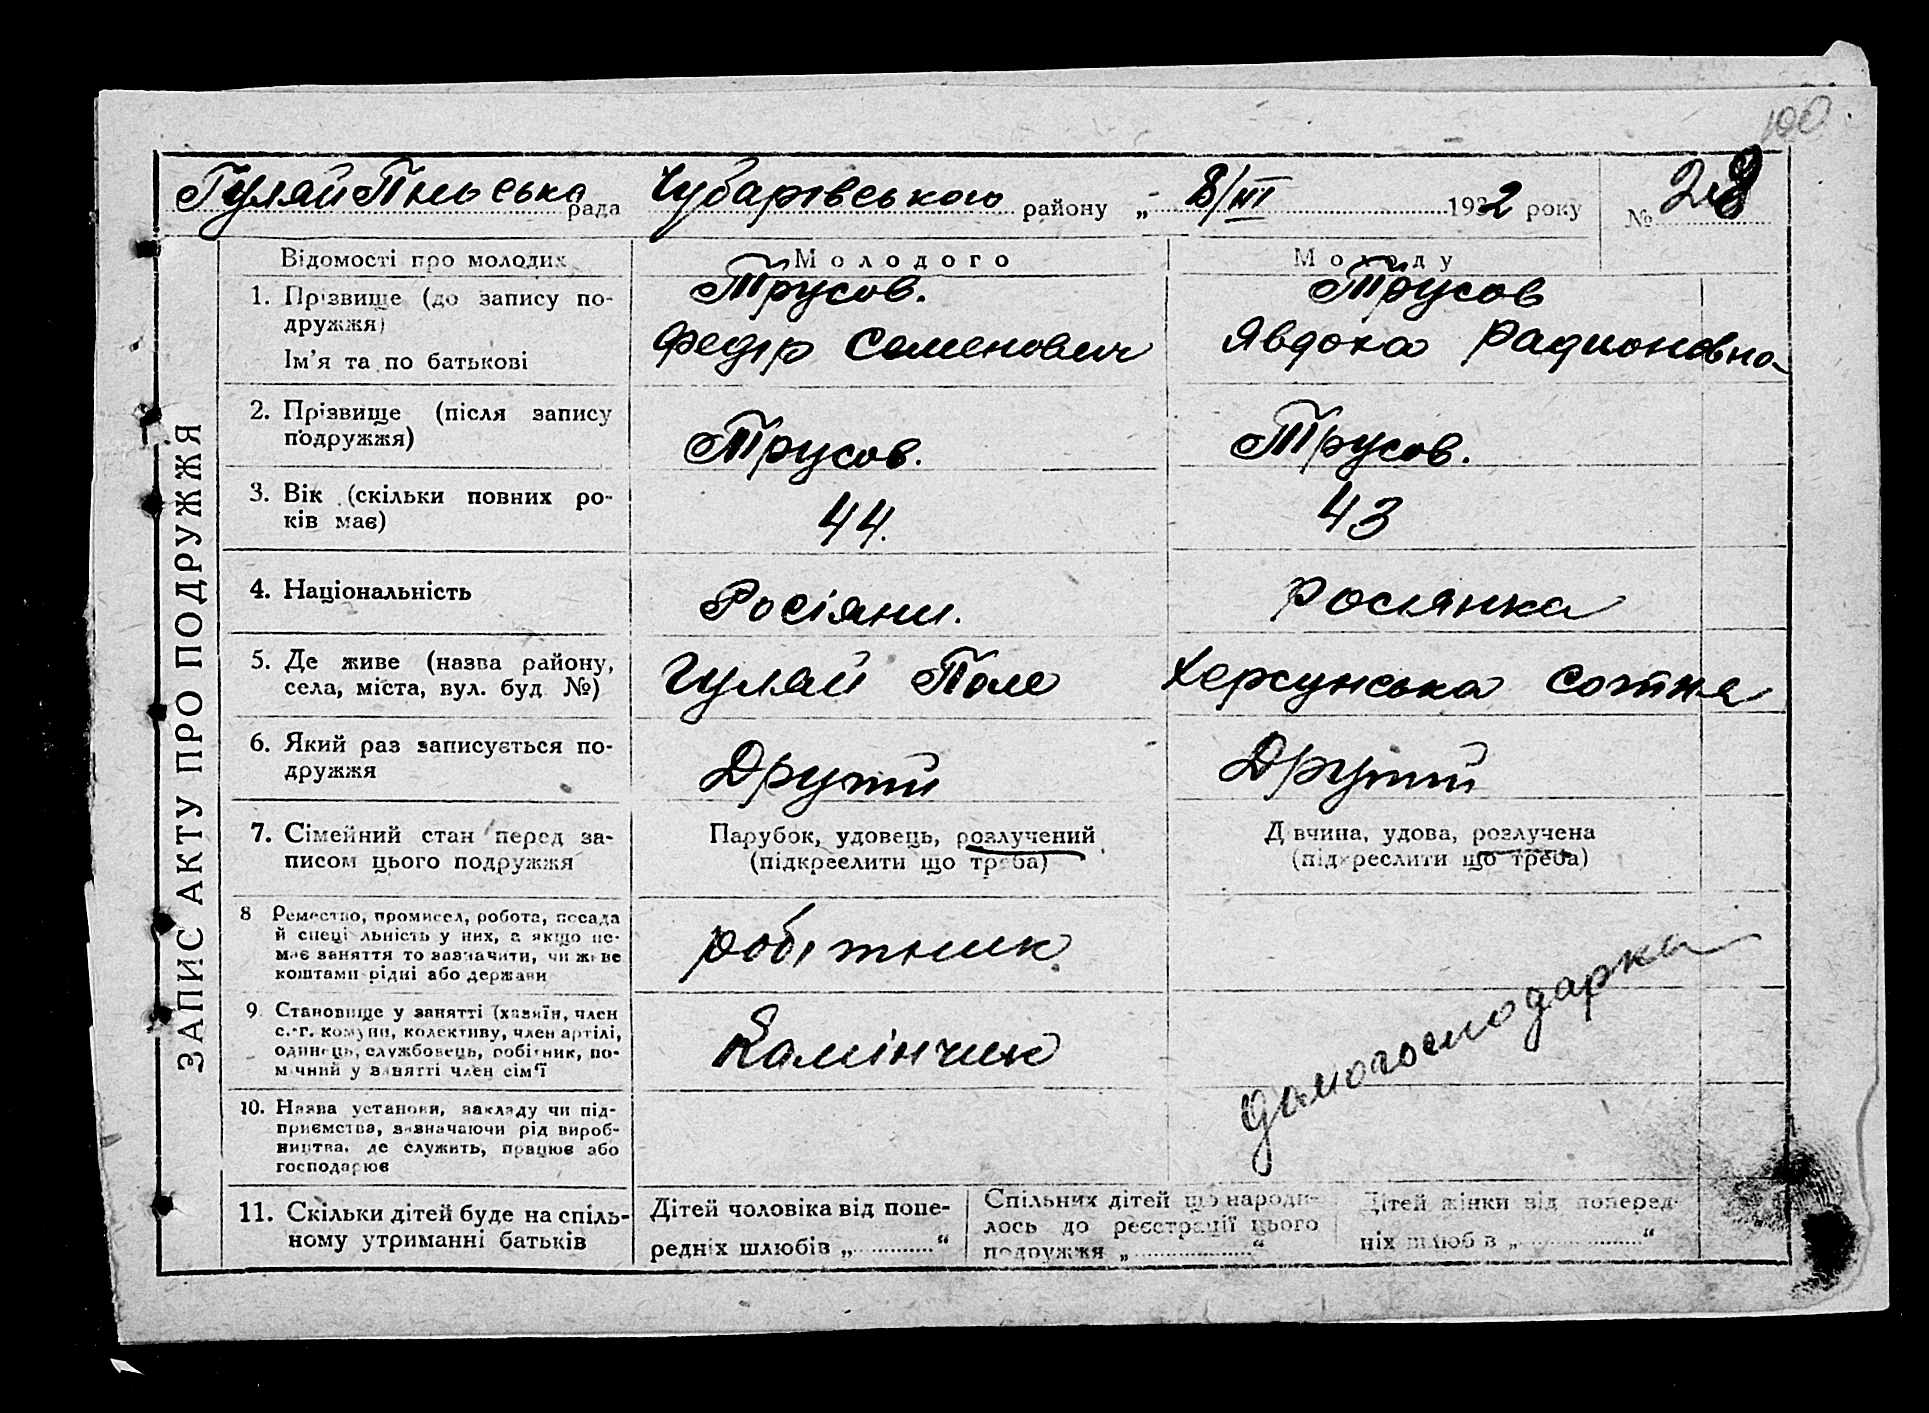 100
ГуляйПільська рада Чубарівського району „ 8/III 1932 року № 28
ЗАПИС АКТУ ПРО ПОДРУЖЖЯ
Відомості про молодих
Молодого
Молоду
1. Прізвище (до запису по-
дружжя)
Ім'я та по батькові
Трусов.
Федір Семенович
Трусов
Явдока Радионовна
2. Прізвище (після запису
подружжя)
Трусов.
Трусов.
3. Вік (скільки повних ро-
ків має)
44.
43
4. Національність
Росіянин.
росіянка
5. Де живе (назва району,
села, міста, вул. буд №)
Гуляй Поле
Херсунська сотня
6. Який раз записується по-
дружжя
Другий
Другий
7. Сімейний стан перед за-
писом цього подружжя
Парубок, удовець, розлучений
(підкреслити що треба)
Дівчина, удова, розлучена
(підкреслити що треба)
8 Ремество, промисел, робота, посада
й спеціяльність у них, а якщо не-
має заняття то зазначити, чи живе
коштами рідні або держави
робітник
домогосподарка
9. Становище у занятті (хазяїн, член
с.-г. комуни, колективу, член артілі,
одинець, службовець, робітник, по-
мічний у занятті член сім'ї
Камінчик
10. Назва установи, закладу чи під-
приємства, зазначаючи рід вироб-
ництва, де служить, працює або
господарює
11. Скільки дітей буде на спіль-
ному утриманні батьків
Дітей чоловіка від попе-
редніх шлюбів „ “
Спільних дітей що народи-
лось до реєстрації цього
подружжя „ “
Дітей жінки від поперед-
ніх шлюбів „ “